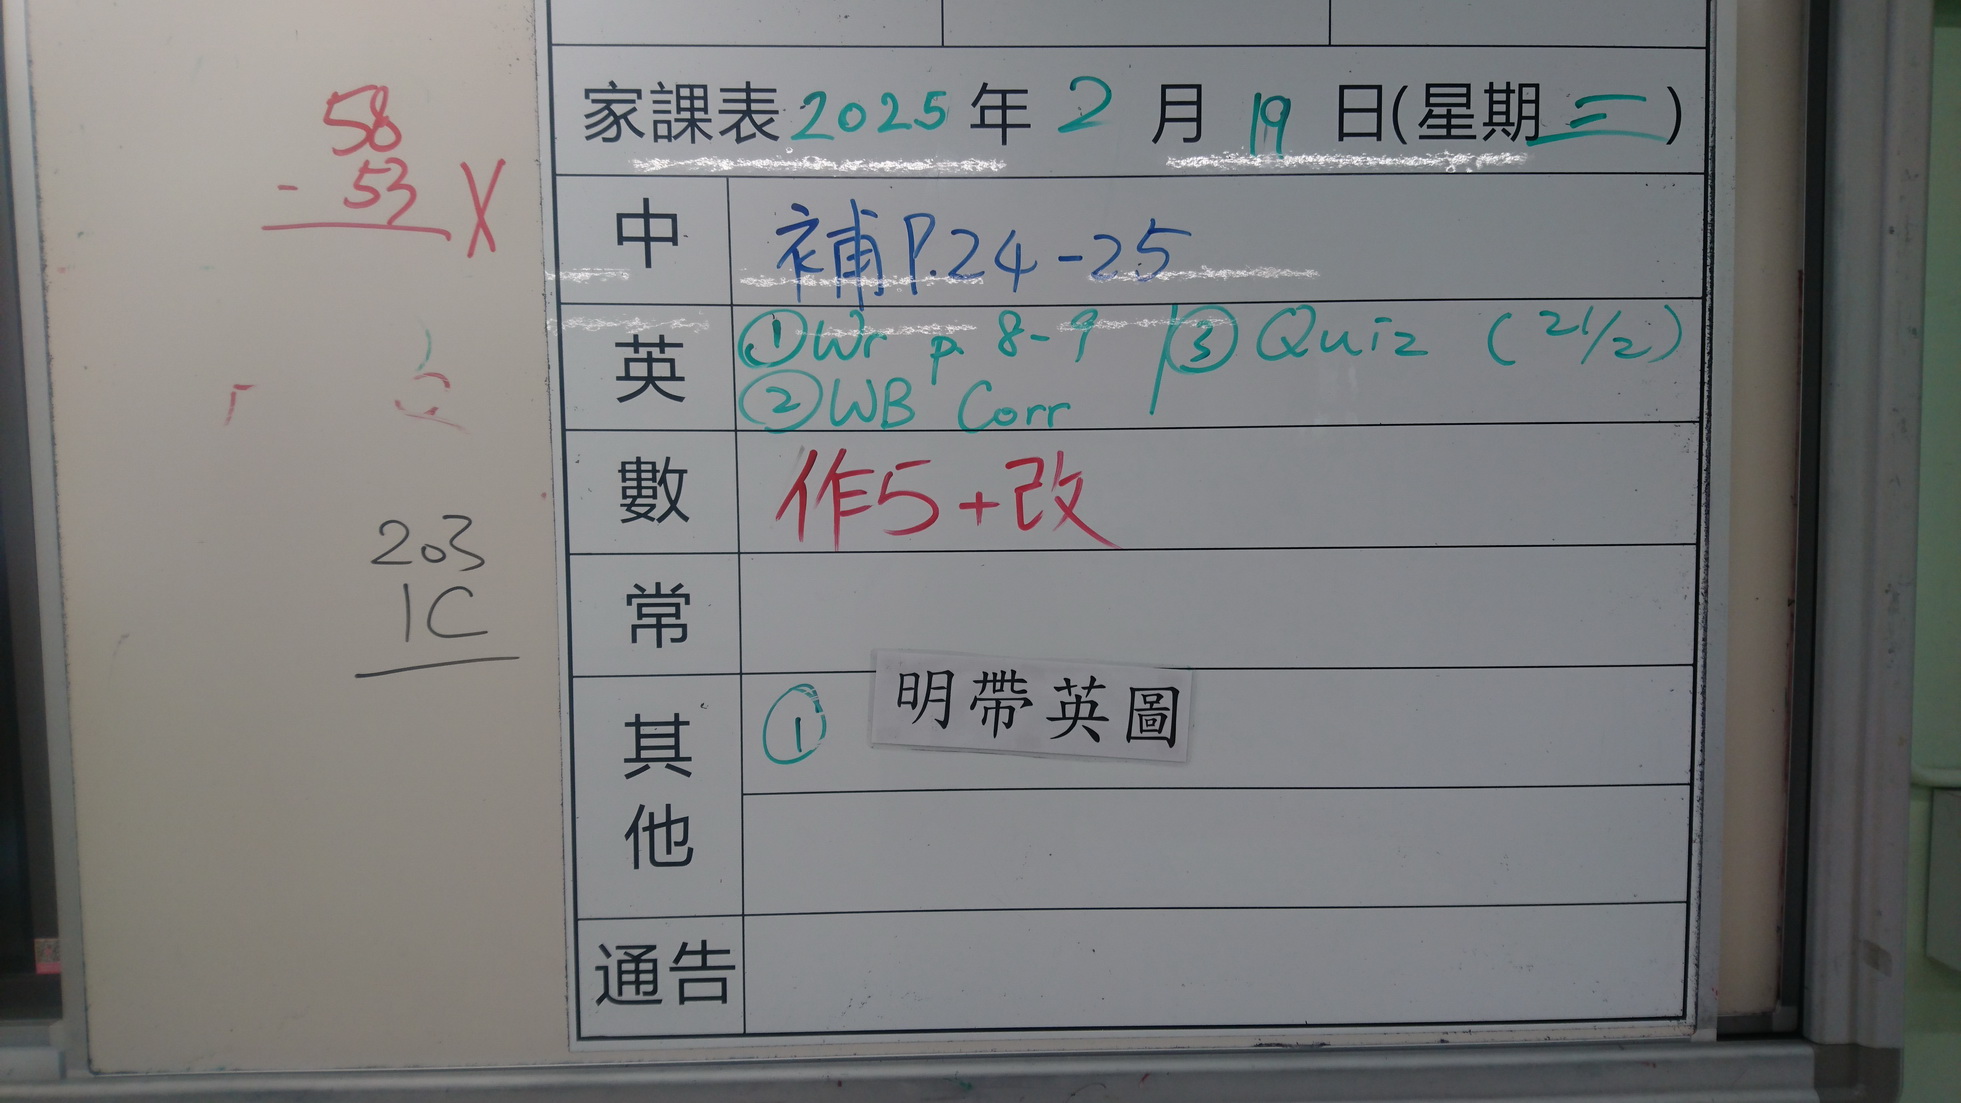 58
- 53 X
203
1C
家課表 2025 年 2 月 19 日(星期三)
中 補P.24-25
英 ① Wr p. 8-9 / ③ Quiz (21/2)
② WB Corr
數 作5+改
常
其他 ① 明帶英圖
通告